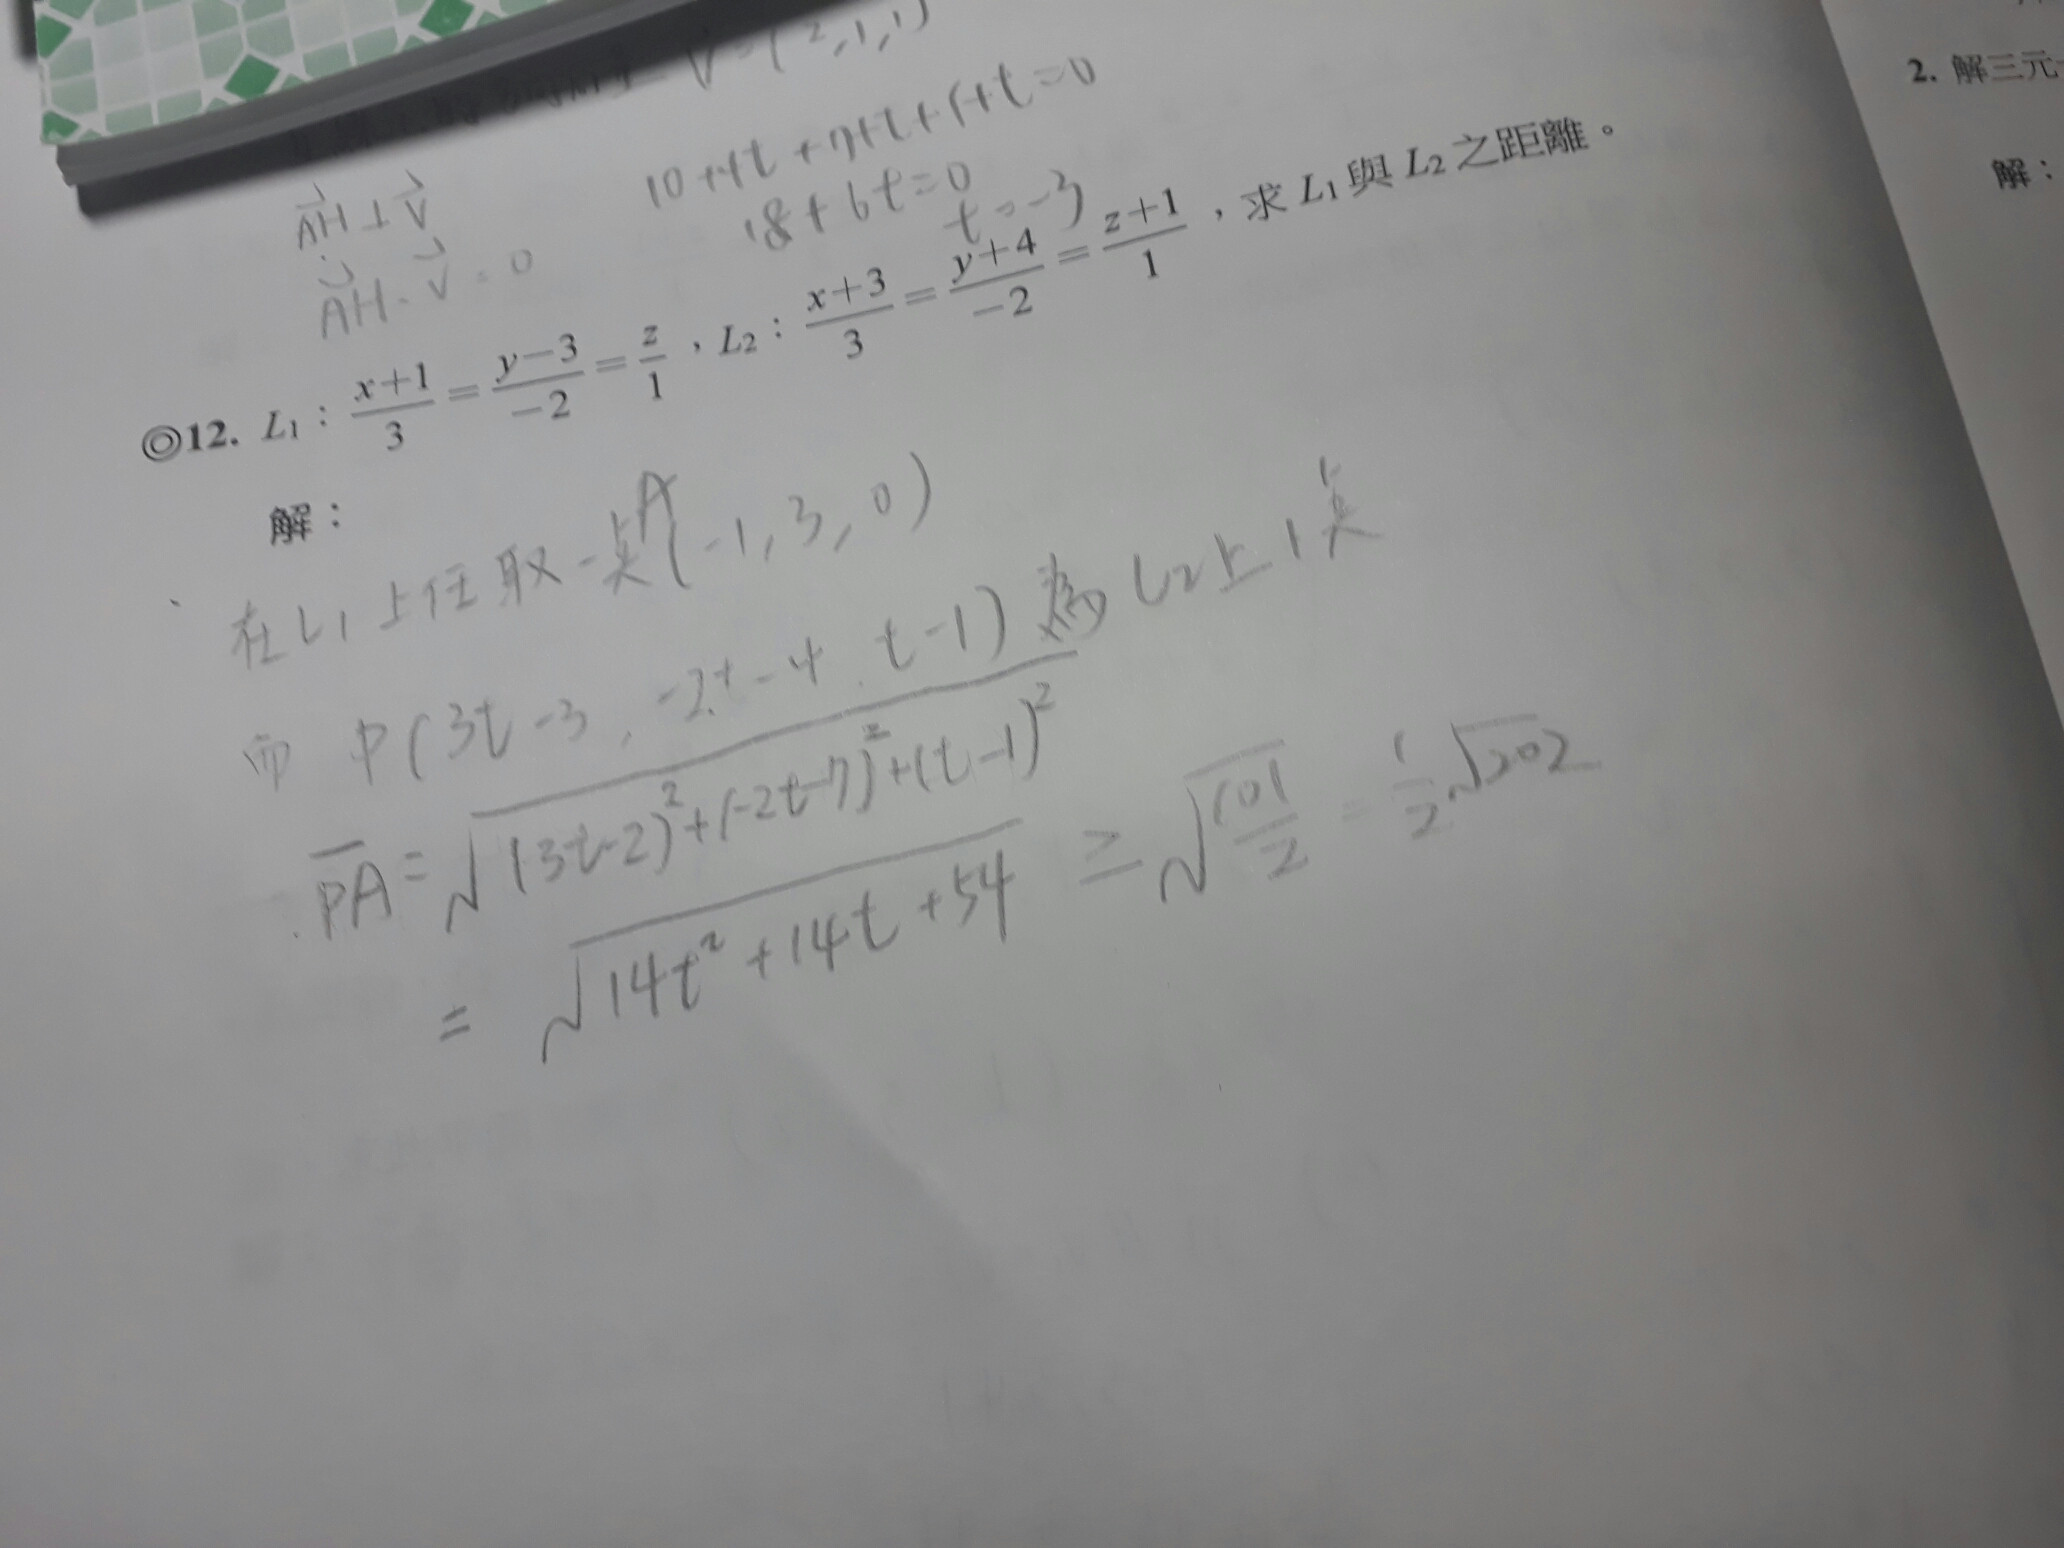 V = (2,1,1)
10+4t+7+t+1+t=0
AH⊥V
18+6t=0
AH·V=0
t=-3
◎12. L1：(x+1)/3=(y-3)/-2=z/1，L2：(x+3)/3=(y+4)/-2=(z+1)/1，求 L1 與 L2 之距離。
解：
在L1上任取一點A(-1,3,0)
而 P(3t-3, -2t-4, t-1)為L2上1點
PA=√((3t-2)²+(-2t-7)²+(t-1)²)
=√(14t²+14t+54) ≥ √(101/2) = 1/2√202
2. 解三元
解：